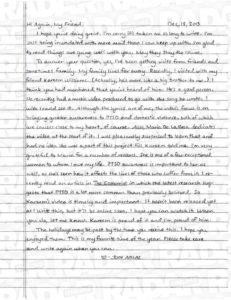 Hi Again, My Friend, Dec, 18, 2013
I hope you're doing great. I'm sorry it's taken me so long to write. I'm
just being inundated with more mail than I can keep up with. I'm glad
to read things are going well with you. May they stay that way.
To answer your question, yes, I've been getting visits from friends and
sometimes family. My family lives far away. Recently, I visited with my
friend Kareem Williams. (Actually, he's more like a big brother to me.) I
think you had mentioned that you've heard of him. He's a good person.
He recently had a music video produced to go with the song he wrote. I
was in it. Although the lyrics are of me, the video's focus is on
bringing greater awareness to PTSD and domestic violence, both of which
are causes close to my heart, of course. Also, Maria De La dedicates
the video at the start of it. I was pleasantly surprised to learn that and
had no idea she was a part of this project till Kareem told me. I'm very
grateful to you for a number of reasons. She is one of a few exceptional
women to whom I owe my life. PTSD awareness is important to her as
well, as she's seen how it affects the lives of those who suffer from it. I re-
cently read an article in The Economist in which the latest research sug-
gests that PTSD is a lot more common than previously believed. So
Kareem's video is timely and important. It hasn't been released yet
as I write this, but it'll be online soon. I hope you can watch it. When
you do, let me know. Kareem is proud of it and I'm proud of him.
The holidays may be past by the time you receive this. I hope you
enjoyed them. This is my favorite time of the year. Please take care
and write again when you can.